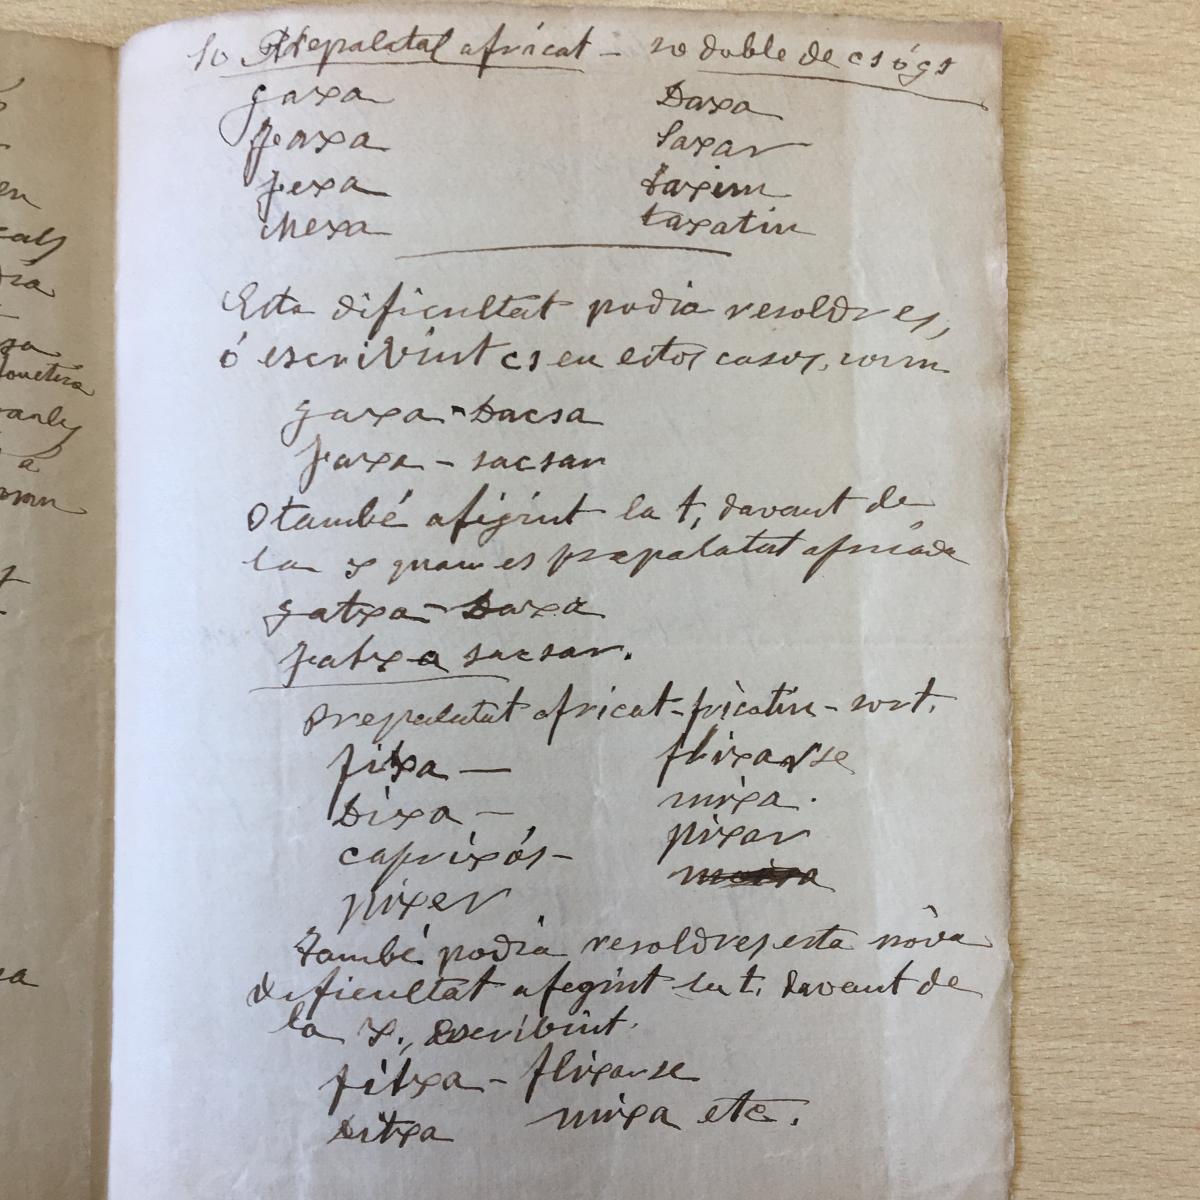 so Prepalatal africat – so doble de cs ó gs
gaxa Daxa
faxa Saxar
fexa taxim
Mexa taxatiu
Esta dificultat podia resoldres,
ó escribint cs en estos casos, com
gaxa - Dacsa
faxa - sacsar
O també afigint la t, davant de
la x quan es prepalatat africada
gatxa - Daxa
fatxa sacsar.
prepalatat africat-fricatiu - sort.
fitxa — flixarse
Dixa — mixa.
caprixós - pixar
pixer
També podia resoldres esta nôva
dificultat afegint la t, davant de
la x., escribint.
fitxa - flixarse
ditxa mixa etc.
en
cals
sa
à